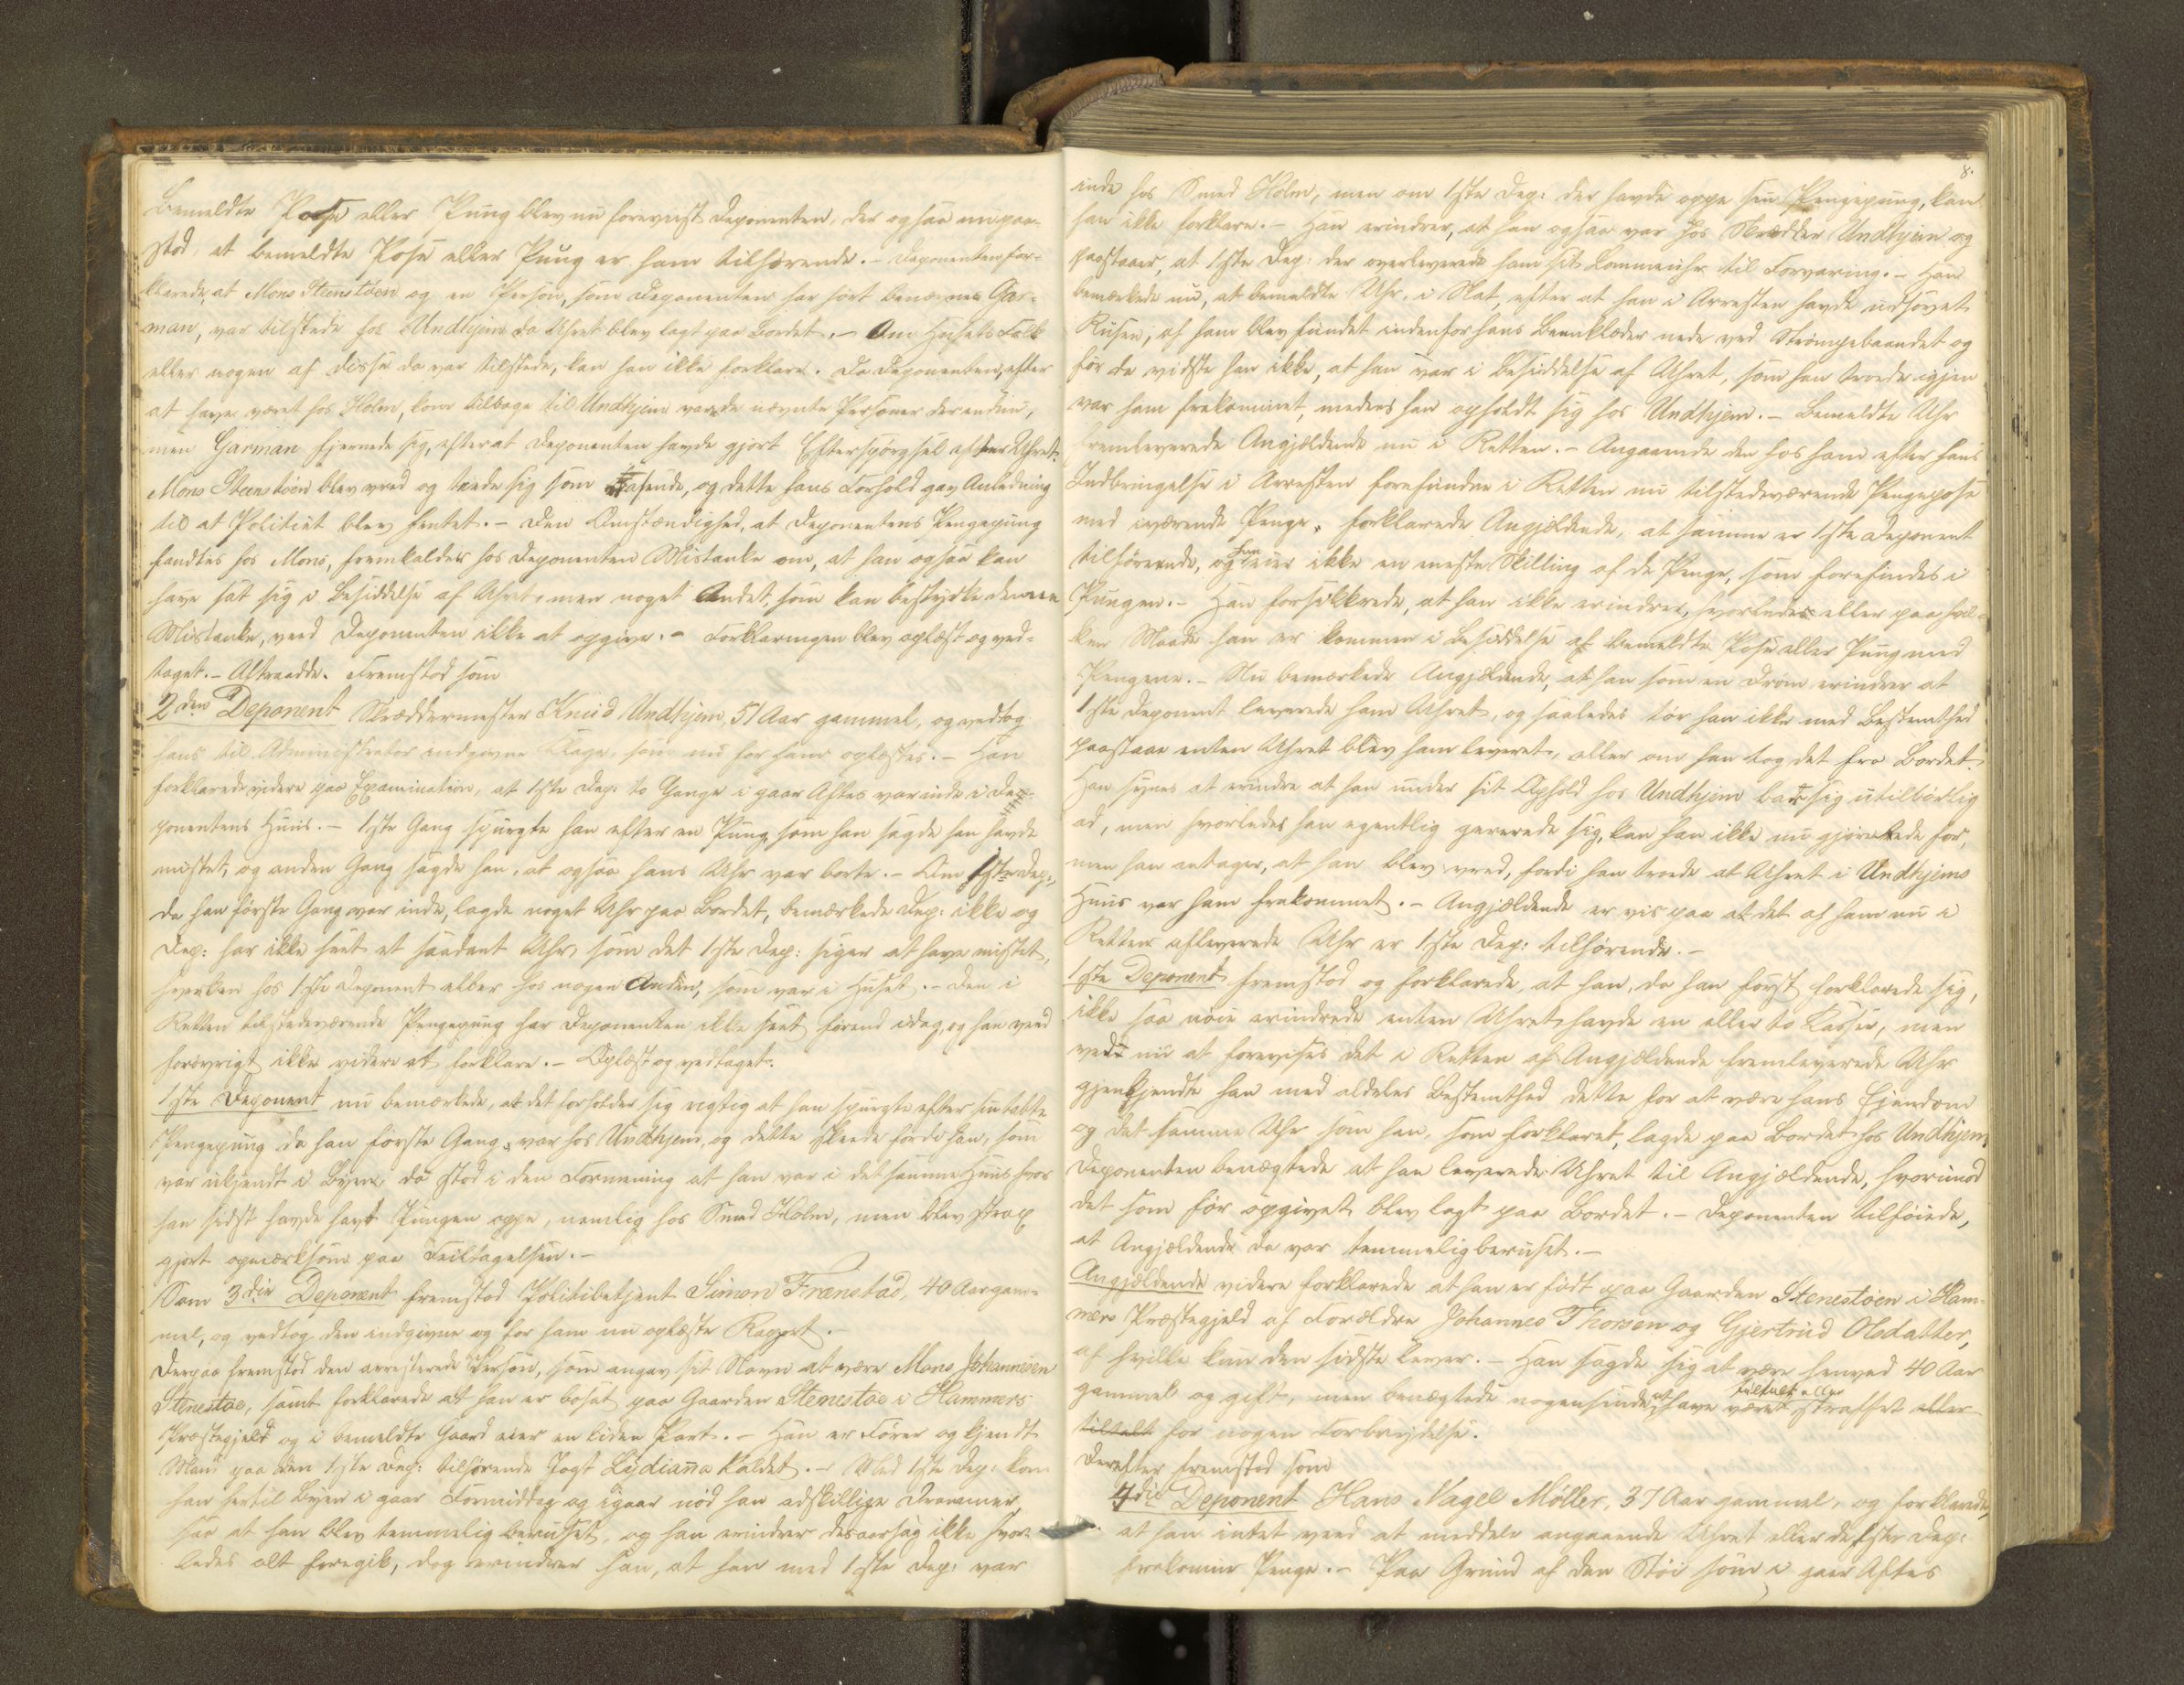 Bemeldte Pose eller Pung blev nu foreviist Deponenten, der ogsaa nu paa-
stod, at bemeldte Pose eller Pung er ham tilhørende. – Deponenten for-
klarede, at Mons Steenstøen og en Person, som Deponenten har hørt benævnes Gar-
man, var tilstede hos Undhjem da Uhret blev lagt paa Bordet. – Om Husets Folk
eller nogen af disse da var tilstede, kan han ikke forklare. Da Deponenten, efter
at have været hos Holm, kom tilbage til Undhjem var de nævnte Personer der endnu,
men Garman fjernede sig, efterat Deponenten havde gjort Efterspørgsel efter Uhret.
Mons Steenstøen blev vred og teede sig som rasende, og dette hans Forhold gav Anledning
til at Politiet blev hentet. – Den Omstændighed, at Deponentens Pengepung
fandtes hos Mons, fremkalder hos Deponenten Mistanke om, at han ogsaa kan
have sat sig i Besiddelse af Uhret, men noget Andet, som kan bestyrke denne
Mistanke, veed Deponenten ikke at opgive. – Forklaringen blev oplæst og ved-
taget. – Aftraadte. Fremstod som
2den Deponent Skræddermester Knud Undhjem, 51 Aar gammel, og vedtog
hans til Administrator indgivne Klage, som nu for ham oplæstes. – Han
forklarede videre paa Examination, at 1ste Dep: to Gange i gaar Aftes var inde i De-
ponentens Huus. – 1ste Gang spurgte han efter en Pung, som han sagde han havde
mistet, og anden Gang sagde han, at ogsaa hans Uhr var borte. – Om 1ste Dep:,
da han første Gang var inde, lagde noget Uhr paa Bordet, bemærkede Dep: ikke og
Dep: har ikke seet et saadant Uhr, som det 1ste Dep: siger at have mistet,
hverken hos 1ste Deponent eller hos nogen Anden, som var i Huset. – Den i
Retten tilstedeværende Pengepung har Deponenten ikke seet førend idag, og han veed
forøvrigt ikke videre at forklare. – Oplæst og vedtaget.
1ste Deponent nu bemærkede, at det forholder sig rigtig at han spurgte efter sin tabte
Pengepung da han første Gang var hos Undhjem, og dette skeede fordi han, som
var ukjendt i Byen, da stod i den Formening at han var i det samme Huus hvor
han sidst havde havt Pungen oppe, nemlig hos Smed Holm, men blev strax
gjort opmærksom paa Feiltagelsen. –
Som 3die Deponent fremstod Politibetjent Simon Frænestad, 40 Aar gam-
mel, og vedtog den indgivne og for ham nu oplæste Rapport. –
Derpaa fremstod den arresterede Person, som angav sit Navn at være Mons Johannesen
Stenestøe, samt forklarede at han er bosat paa Gaarden Stenestøe i Hammers
Præstegjeld og i bemeldte Gaard eier en liden Part. – Han er Fører og kjendt
Mand paa den 1ste Dep: tilhørende Jagt Lydianna kaldet. – Med 1ste Dep: kom
han hertil Byen i gaar Formiddag og igaar nød han adskillige Drammer,
saa at han blev temmelig beruset, og han erindrer desaarsag ikke hvor-
ledes alt foregik, dog erindrer han, at han med 1ste Dep: var
8.
inde hos Smed Holm, men om 1ste Dep: der havde oppe sin Pengepung, kan
han ikke forklare. – Han erindrer, at han ogsaa var hos Skrædder Undhjem og
paastaaer, at 1ste Dep: der overleverede ham sit Lommeuhr til Forvaring. – Han
bemærkede nu, at bemeldte Uhr, i Nat, efter at han i Arresten havde udsovet
Rusen, af ham blev fundet indenfor hans Beenklæder nede ved Strømpebaandet og
før da vidste han ikke, at han var i Besiddelse af Uhret, som han troede igjen
var ham frakommet, medens han opholdt sig hos Undhjem. – Bemeldte Uhr
fremleverede Angjældende nu i Retten. – Angaaende den hos ham efter hans
Indbringelse i Arresten forefundne i Retten nu tilstedeværende Pengepose
med iværende Penge, forklarede Angjældende, at samme er 1ste Deponent
tilhørende, og han eier ikke en eneste Skilling af de Penge, som forefindes i
Pungen. – Han forsikkrede, at han ikke erindrer, hvorledes eller paa hvil-
ken Maade han er kommen i Besiddelse af bemeldte Pose eller Pung med
Pengene. – Nu bemærkede Angjældende, at han som en Drøm erindrer at
1ste Deponent leverede ham Uhret, og saaledes tør han ikke med Bestemthed
paastaae enten Uhret blev ham leveret, eller om han tog det fra Bordet.
Han synes at erindre at han under sit Ophold hos Undhjem bar sig utilbørlig
ad, men hvorledes han egentlig gererede sig, kan han ikke nu gjøre Rede for,
men han antager, at han blev vred, fordi han troede at Uhret i Undhjems
Huus var ham frakommet. – Angjældende er vis paa at det af ham nu i
Retten afleverede Uhr er 1ste Dep: tilhørende. –
1ste Deponent fremstod og forklarede, at han, da han først forklarede sig,
ikke saa nøie erindrede enten Uhret havde en eller to Kasser, men
ved nu at forevises det i Retten af Angjældende fremleverede Uhr
gjenkjendte han med aldeles Bestemthed dette for at være hans Eiendom
og det samme Uhr som han, som forklaret, lagde paa Bordet hos Undhjem
Deponenten benægtede at han leverede Uhret til Angjældende, hvorimod
det som før opgivet blev lagt paa Bordet. – Deponenten tilføiede,
at Angjældende da var temmelig beruset. –
Angjældende videre forklarede at han er født paa Gaarden Stenestøen i Ham-
mers Præstegjeld af Forældre Johannes Thorsen og Gjertrud Olsdatter,
af hvilke kun den sidste lever. – Han sagde sig at være henved 40 Aar
gammel og gift, men benægtede nogensinde at have været tiltalt eller straffet eller
tiltalt for nogen Forbrydelse.
Derefter fremstod som
4de Deponent Hans Nagel Møller, 37 Aar gammel, og forklarede,
at han intet veed at meddele angaaende Uhret eller de 1ste Dep:
frakomne Penge. – Paa Grund af den Støi som i gaar Aftes